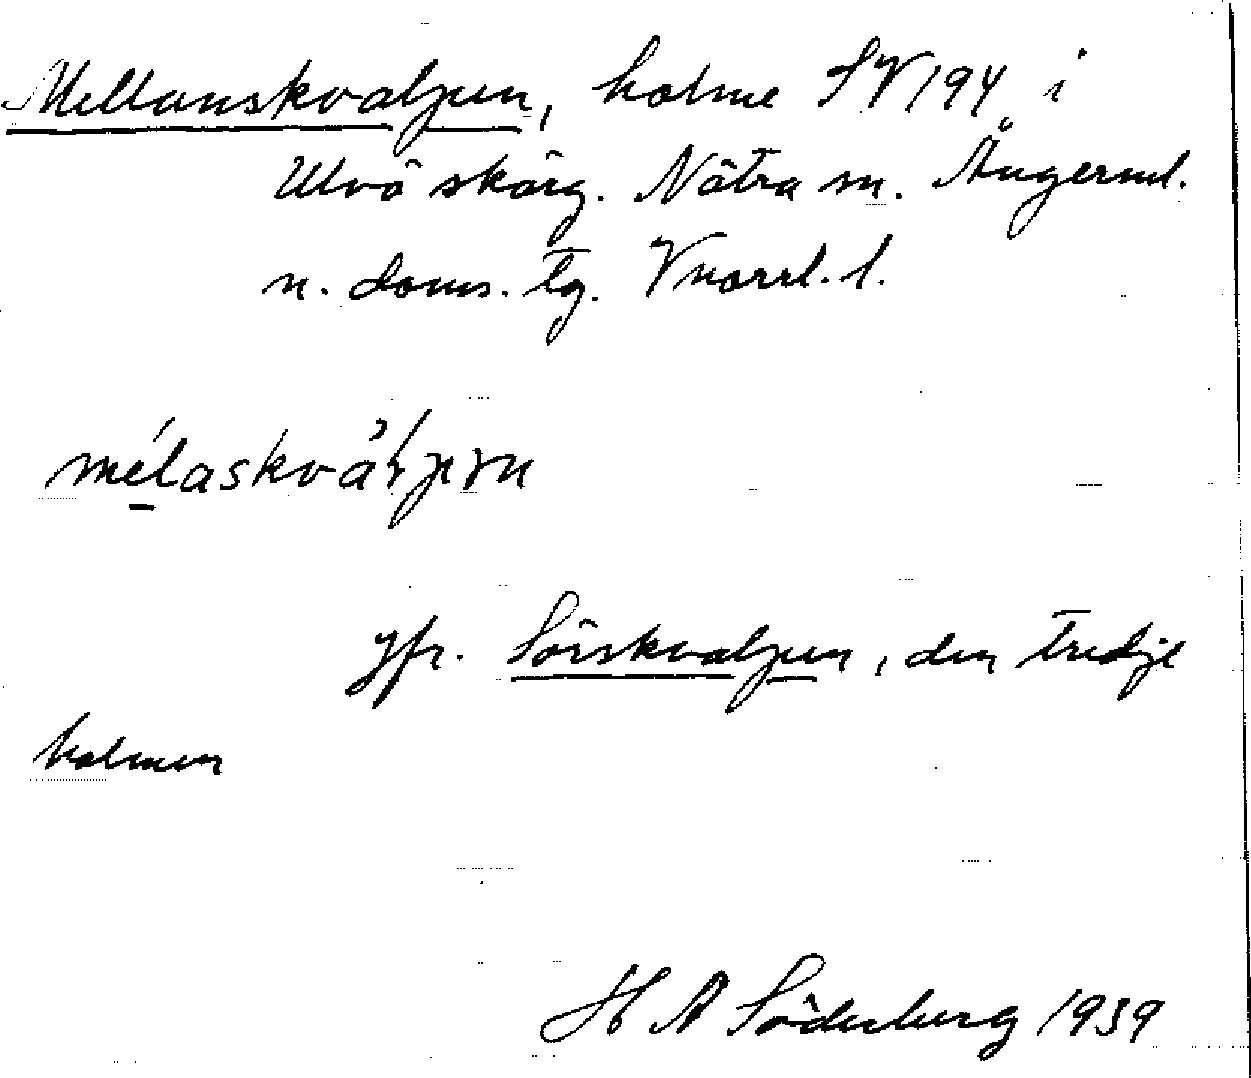 Mellanskvalpen, holme SV 194 i
Ulvö skärg. Nätra sn. Ångerml.
n. doms. tg. Vnorrl. l.
mélaskvàɽpɤn
jfr. Sörskvalpen, den tredje
holmen
H A Söderberg 1939